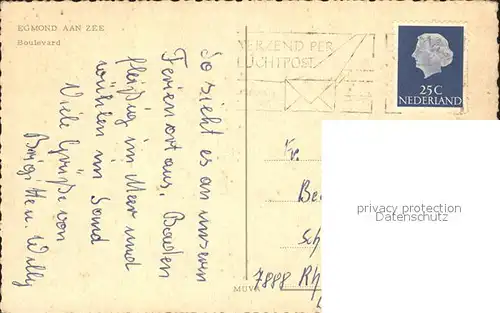 EGMOND AAN ZEE
Boulevard
So sieht es an unserem
Ferienort aus. Baden
fleißig im Meer und
wühlen im Sand
Viele Grüße von
Brigitte u. Willy
VERZEND PER
LUCHTPOST
25C
NEDERLAND
Fr.
Be
Sch
7888 Rh
MUVA
privacy protection
Datenschutz